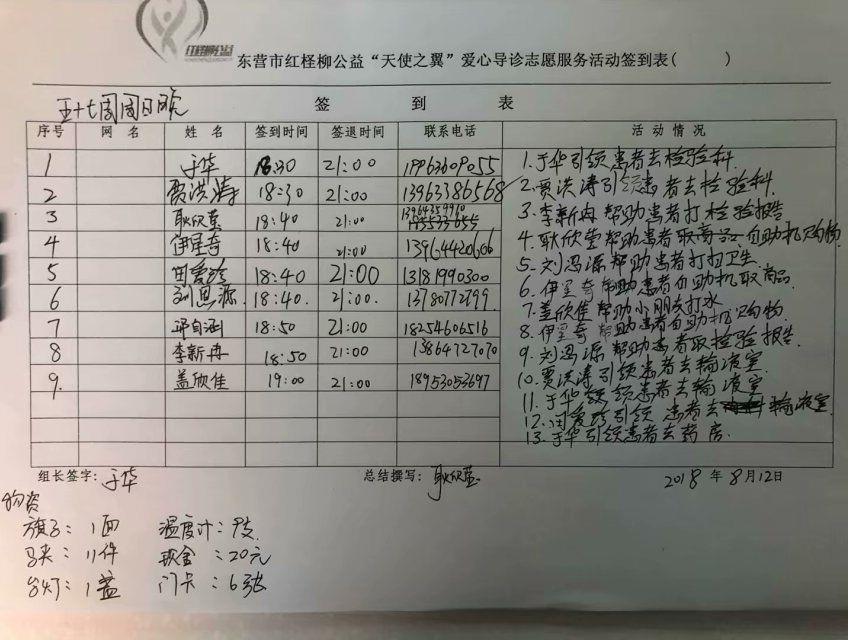 红柽柳公益
东营市红柽柳公益“天使之翼”爱心导诊志愿服务活动签到表( )
五十七周周日晚
签 到 表
序号 网 名 姓 名 签到时间 签退时间 联系电话 活 动 情 况
1 于华 18:30 21:00
2 贾洪涛 18:30 21:00 13963386568
3 耿欣莹 18:40 21:00
4 伊星奇 18:40 21:00 13964420606
5 田爱珍 18:40 21:00 13181990300
6 18:40. 21:00. 13780772799
7 邱自涵 18:50 21:00 18254606516
8 李新冉 18:50 21:00 13864727070
9. 盖欣佳 19:00 21:00 18953053697
1.于华引领患者去检验科
2.贾洪涛引领患者去检验科.
3.李新冉帮助患者打检验报告
4.耿欣莹帮助患者取商品自助机购物
5.刘冯源帮助患者打扫卫生
6.伊星奇帮助患者自助机取商品
7.盖欣佳帮助小朋友打水
8.伊星奇帮助患者自助机购物
9.刘冯源帮助患者取检验报告.
10.贾洪涛引领患者去输液室
11.于华领领患者去输液室
12.田爱珍引领患者去输液室
13.于华引领患者去药房.
组长签字: 于华 总结撰写: 耿欣莹 2018 年 8月12日
物资
旗子: 1面 温度计: 9支
马夹: 11件 现金: 20元
台灯: 1盏 门卡: 6张